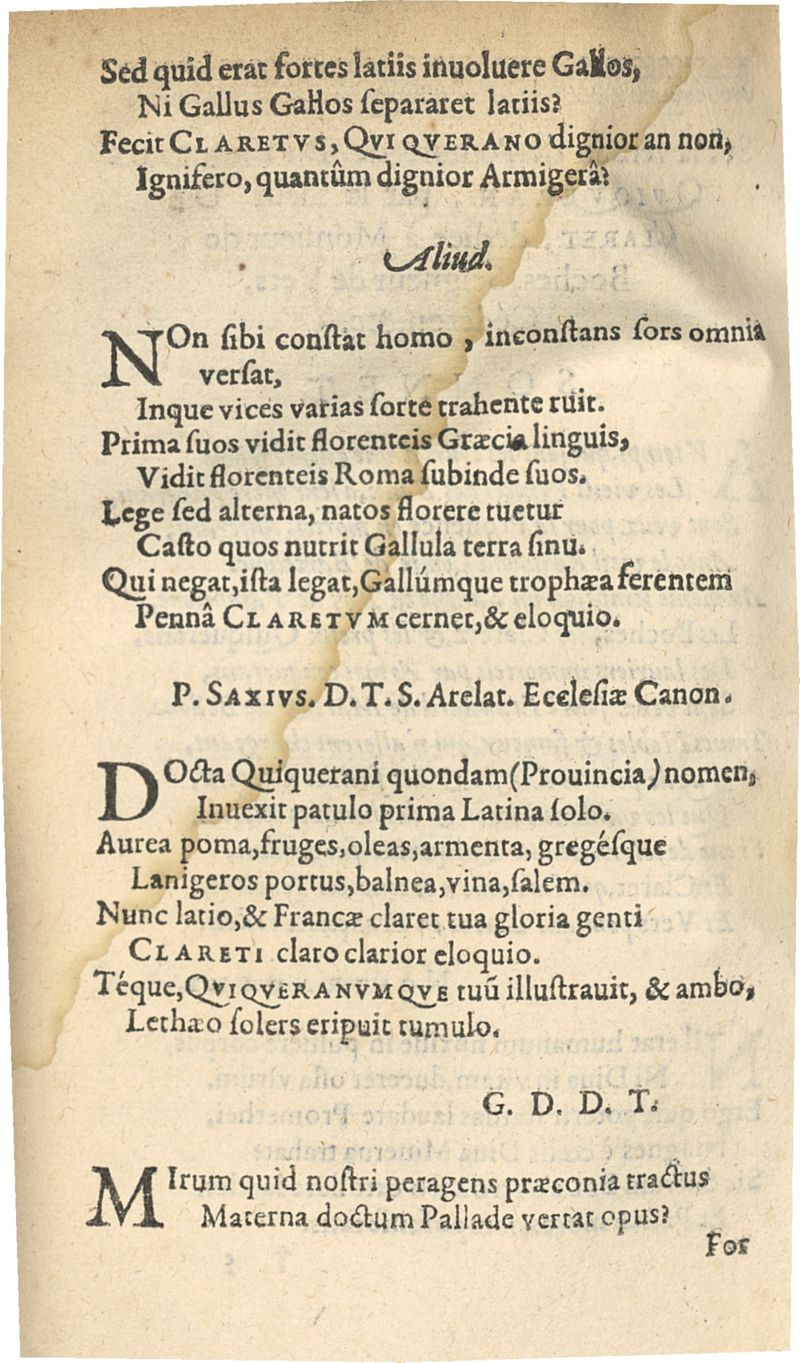 Sed quid erat fortes latiis inuoluere Gallos,
Ni Gallus Gallos ſepararet latiis?
Fecit CLARETVS, QVIQVERANO dignior an non,
Ignifero, quantûm dignior Armigerâ?
Aliud.
NOn ſibi conſtat homo, inconſtans ſors omnia
verſat,
Inque vices varias ſorte trahente ruit.
Prima ſuos vidit florenteis Græcia linguis,
Vidit florenteis Roma ſubinde ſuos.
Lege ſed alterna, natos florere tuetur
Caſto quos nutrit Gallula terra ſinu.
Qui negat, iſta legat, Gallúmque trophæa ferentem
Pennâ CLARETVM cernet, & eloquio.
P. SAXIVS. D. T. S. Arelat. Eccleſiæ Canon.
DOcta Quiquerani quondam (Prouincia) nomen,
Inuexit patulo prima Latina ſolo.
Aurea poma, fruges, oleas, armenta, gregéſque
Lanigeros portus, balnea, vina, ſalem.
Nunc latio, & Francæ claret tua gloria genti
CLARETI claro clarior eloquio.
Téque, QVIQVERANVMQVE tuũ illuſtrauit, & ambo,
Lethæo ſolers eripuit tumulo.
G. D. D. T.
MIrum quid noſtri peragens præconia tractus
Materna doctum Pallade vertat opus?
For